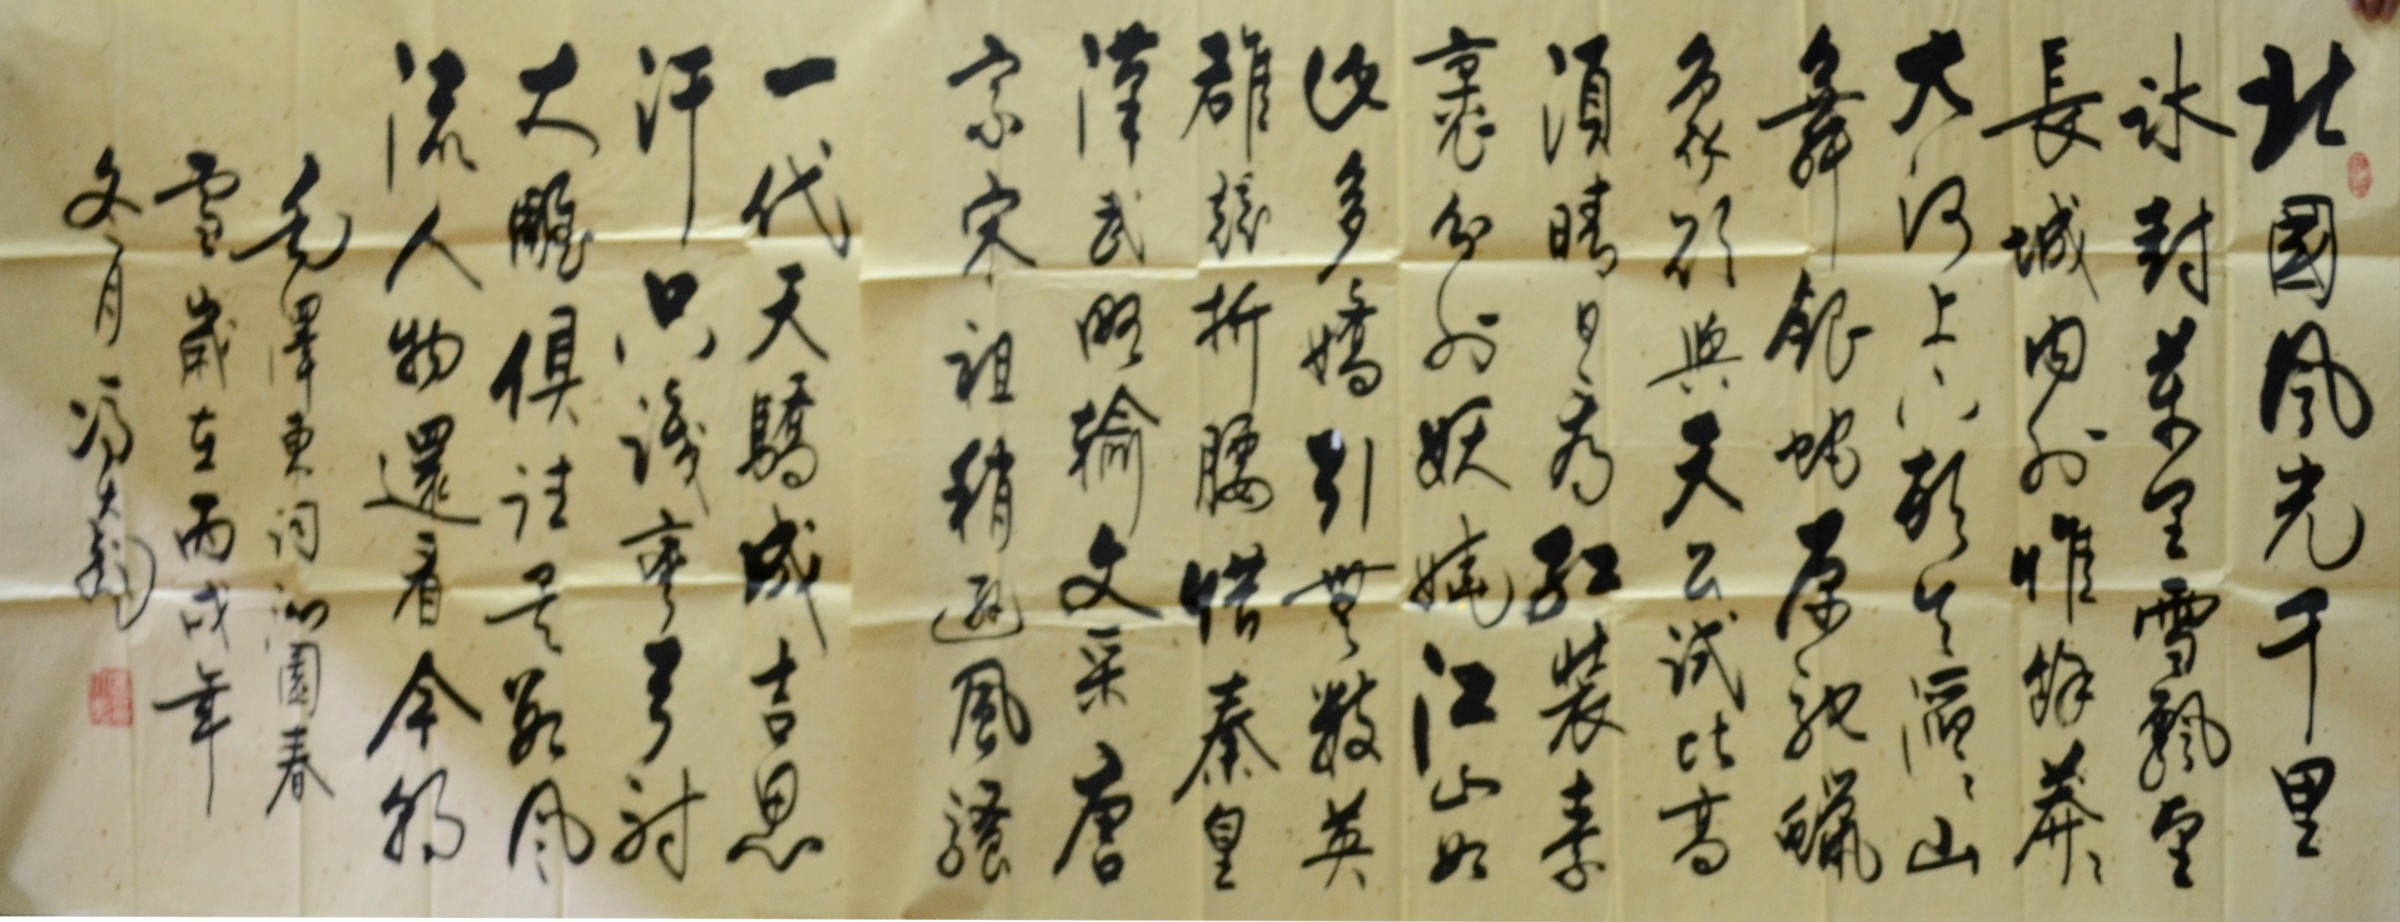 北國风光千里
冰封萬里雪飘望
長城内外惟餘莽〻
大河上下顿失滔〻山
舞銀蛇原驰蠟
象欲與天公试比高
須晴日看红装素
裹分外妖娆江山如
此多嬌引無數英
雄競折腰惜秦皇
漢武略输文采唐
宗宋祖稍逊風骚
一代天驕成吉思
汗只識彎弓射
大雕俱往矣数风
流人物還看今朝
毛澤東词沁園春
雪歲在丙戌年
文月冯大彪